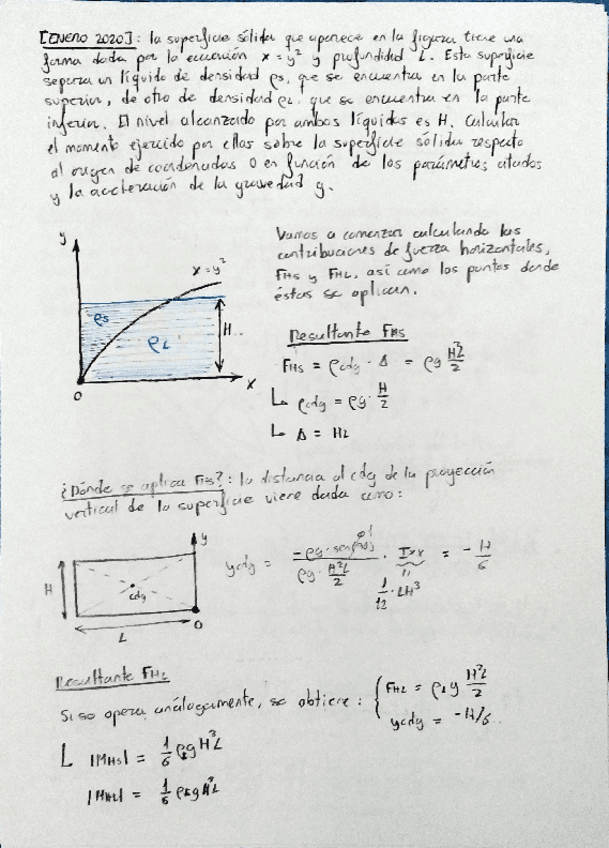 [ENERO 2020]: la superficie sólida que aparece en la figura tiene una
forma dada por la ecuación x = y² y profundidad L. Esta superficie
separa un líquido de densidad ρs, que se encuentra en la parte
superior, de otro de densidad ρL que se encuentra en la parte
inferior. El nivel alcanzado por ambos líquidos es H. Calcular
el momento ejercido por ellos sobre la superficie sólida respecto
al origen de coordenadas O en función de los parámetros citados
y la aceleración de la gravedad g.
Vamos a comenzar calculando las
contribuciones de fuerza horizontales,
FHS y FHL, así como los puntos donde
éstas se aplican.
y
x = y²
ρs
ρL
H
O
x
Resultante FHS
FHS = ρcdg · A = ρg H²/2
↳ ρcdg = ρg · H/2
↳ A = HL
¿Dónde se aplica FHS?: la distancia al cdg de la proyección
vertical de la superficie viene dada como:
y
H
cdg
L
O
ycdg = -ρg · sen(90) / ρg · H²L/2 · Ixx = - H/6
1
1/12 · LH³
Resultante FHL
Si se opera análogamente, se obtiene: { FHL = ρL g H²L/2
ycdg = -H/6
L |MHS| = 1/6 ρsgH³L
|MHL| = 1/6 ρLgH³L